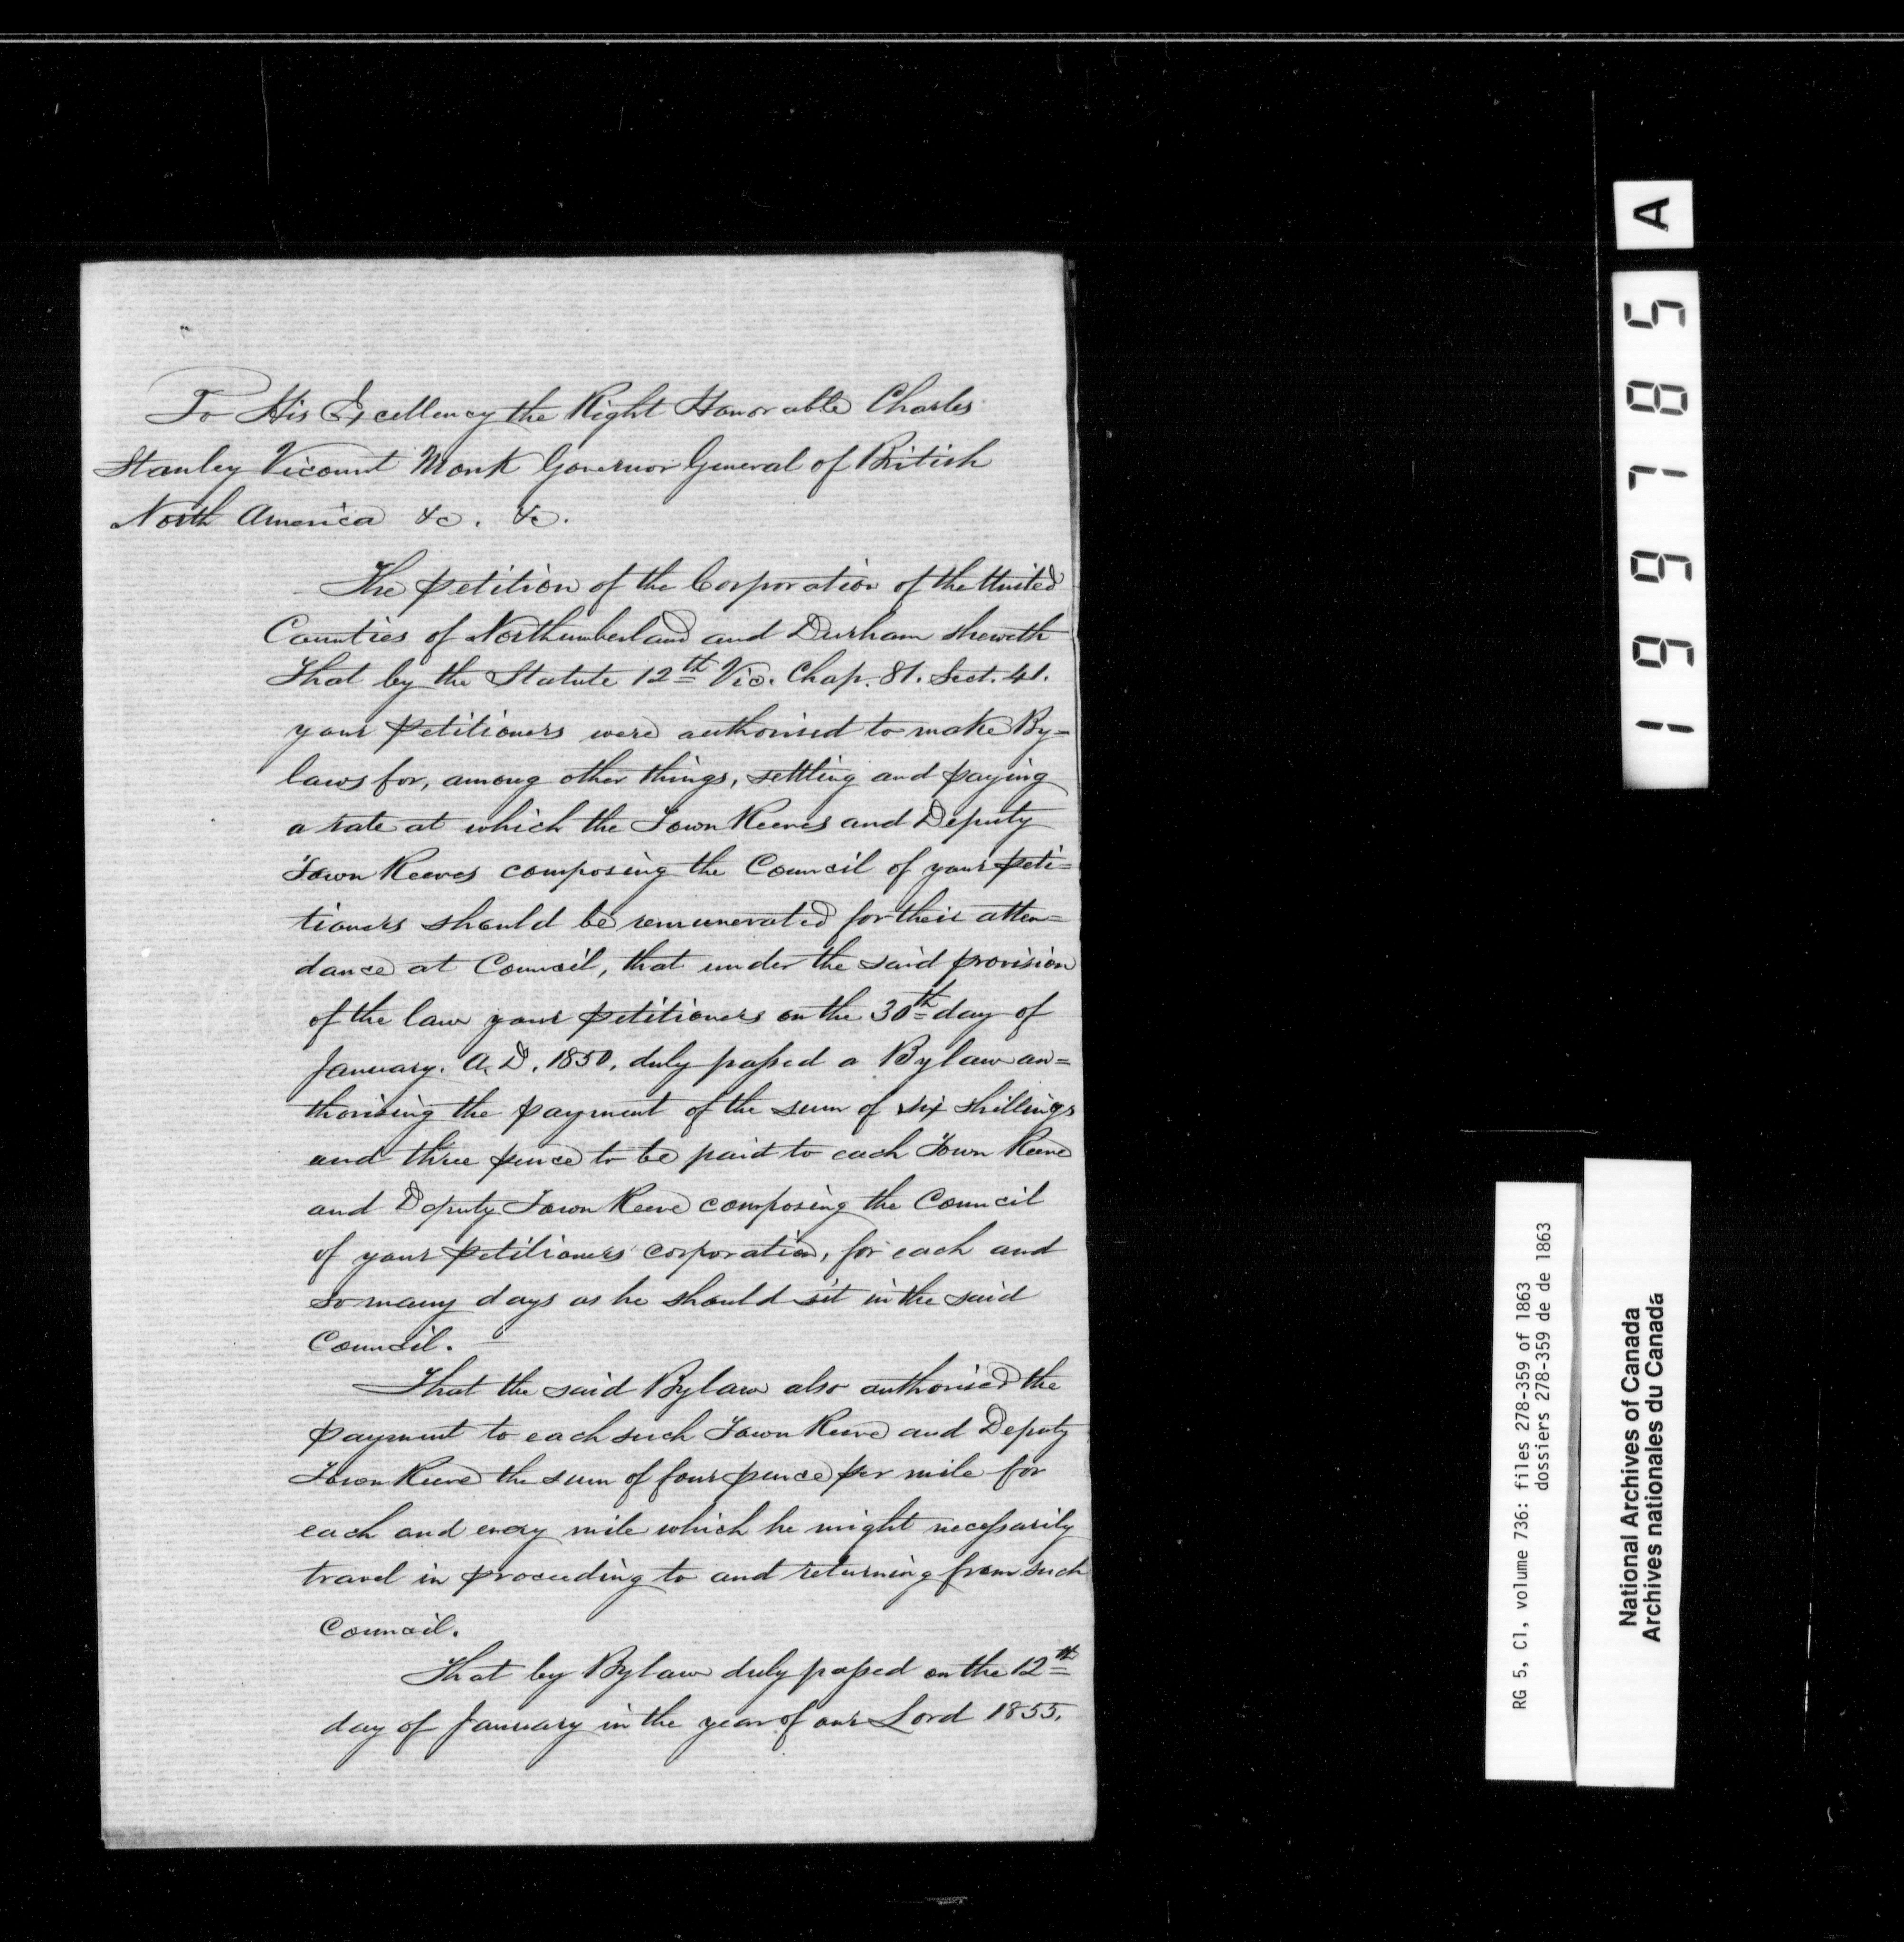 To His Excellency the Right Honorable Charles
Stanley Vicount Monk Governor General of British
North America &c. &c.
The petition of the Corporation of the United
Counties of Northumberland and Durham sheweth
That by the Statute 12th Vic. Chap. 81. Sect. 41.
your petitioners were authorised to make By=
laws for, among other things, settling and paying
a rate at which the Town Reeves and Deputy
Town Reeves composing the Council of your peti=
tioners should be remunerated for their atten=
dance at Council, that under the said provision
of the law your petitioners on the 30th day of
January. A.D. 1850, duly passed a Bylaw au=
thorising the payment of the sum of six shillings
and three pence to be paid to each Town Reeve
and Deputy Town Reeve composing the Council
of your petitioners' corporation, for each and
so many days as he should sit in the said
Council.
That the said Bylaw also authorised the
payment to each such Town Reeve and Deputy
Town Reeve the sum of four pence per mile for
each and every mile which he might necessarily
travel in proceeding to and returning from such
Council.
That by Bylaw duly passed on the 12th
day of January in the year of our Lord 1855,
199785 A
RG 5, C1, volume 736: files 278-359 of 1863
dossiers 278-359 de de 1863
National Archives of Canada
Archives nationales du Canada